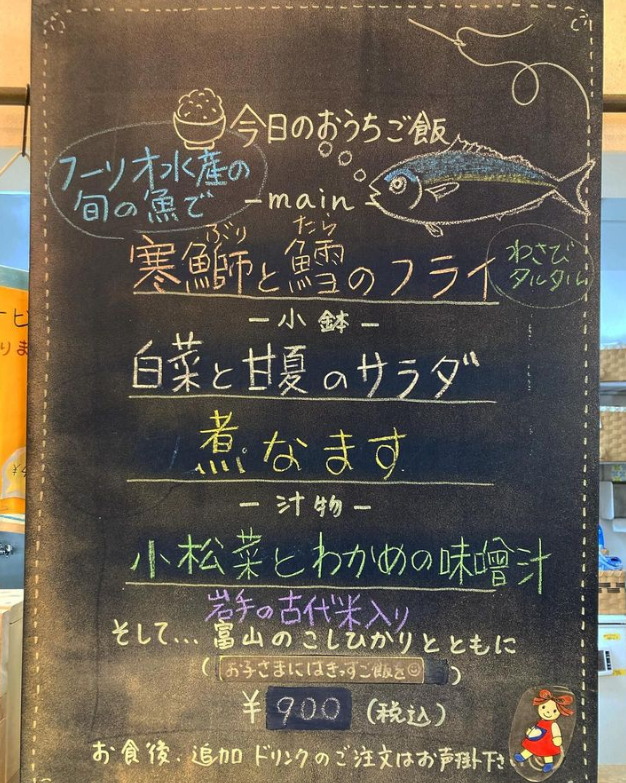 今日のおうちご飯
フーソオ水産の
旬の魚で
-main-
ぶり たら
寒鰤と鱈のフライ
わさび
タルタル
-小鉢-
白菜と甘夏のサラダ
煮なます
-汁物-
小松菜とわかめの味噌汁
岩手の古代米入り
そして...富山のこしひかりとともに
(お子さまにはきっずご飯を☺)
¥900(税込)
お食後、追加ドリンクのご注文はお声掛下さい